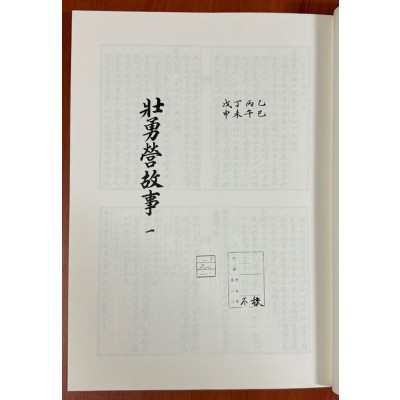 乙巳
丙午
丁未
戊申
壯勇營故事 一
不秩